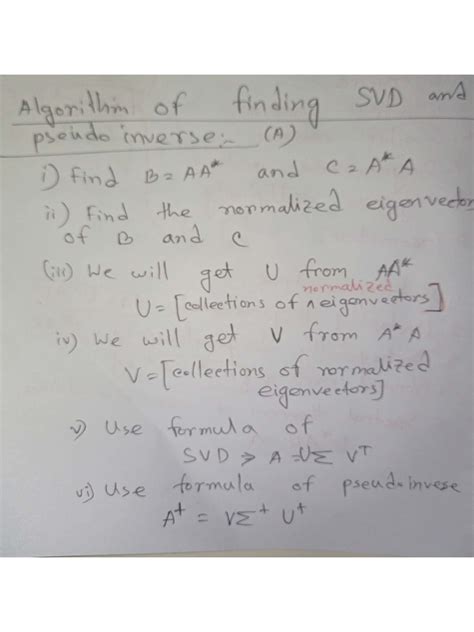 Algorithm of finding SVD and
pseudo inverse:- (A)
i) find B = AA* and C = A* A
ii) Find the normalized eigenvector
of B and C
(iii) We will get U from AA*
normalized
U = [collections of ∧ eigenvectors]
iv) We will get V from A* A
V = [collections of normalized
eigenvectors]
v) Use formula of
SVD > A = UΣ V^T
vi) Use formula of pseudoinvese
A^+ = VΣ^+ U^+